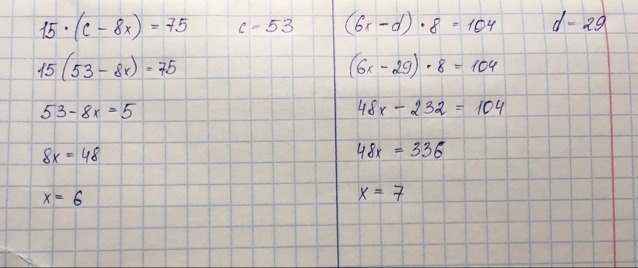 15 · (c - 8x) = 75    c - 53
15 (53 - 8x) = 75
53 - 8x = 5
8x = 48
x = 6
(6x - d) · 8 = 104    d - 29
(6x - 29) · 8 = 104
48x - 232 = 104
48x = 336
x = 7